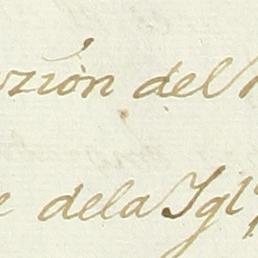 zión del
e dela Igl